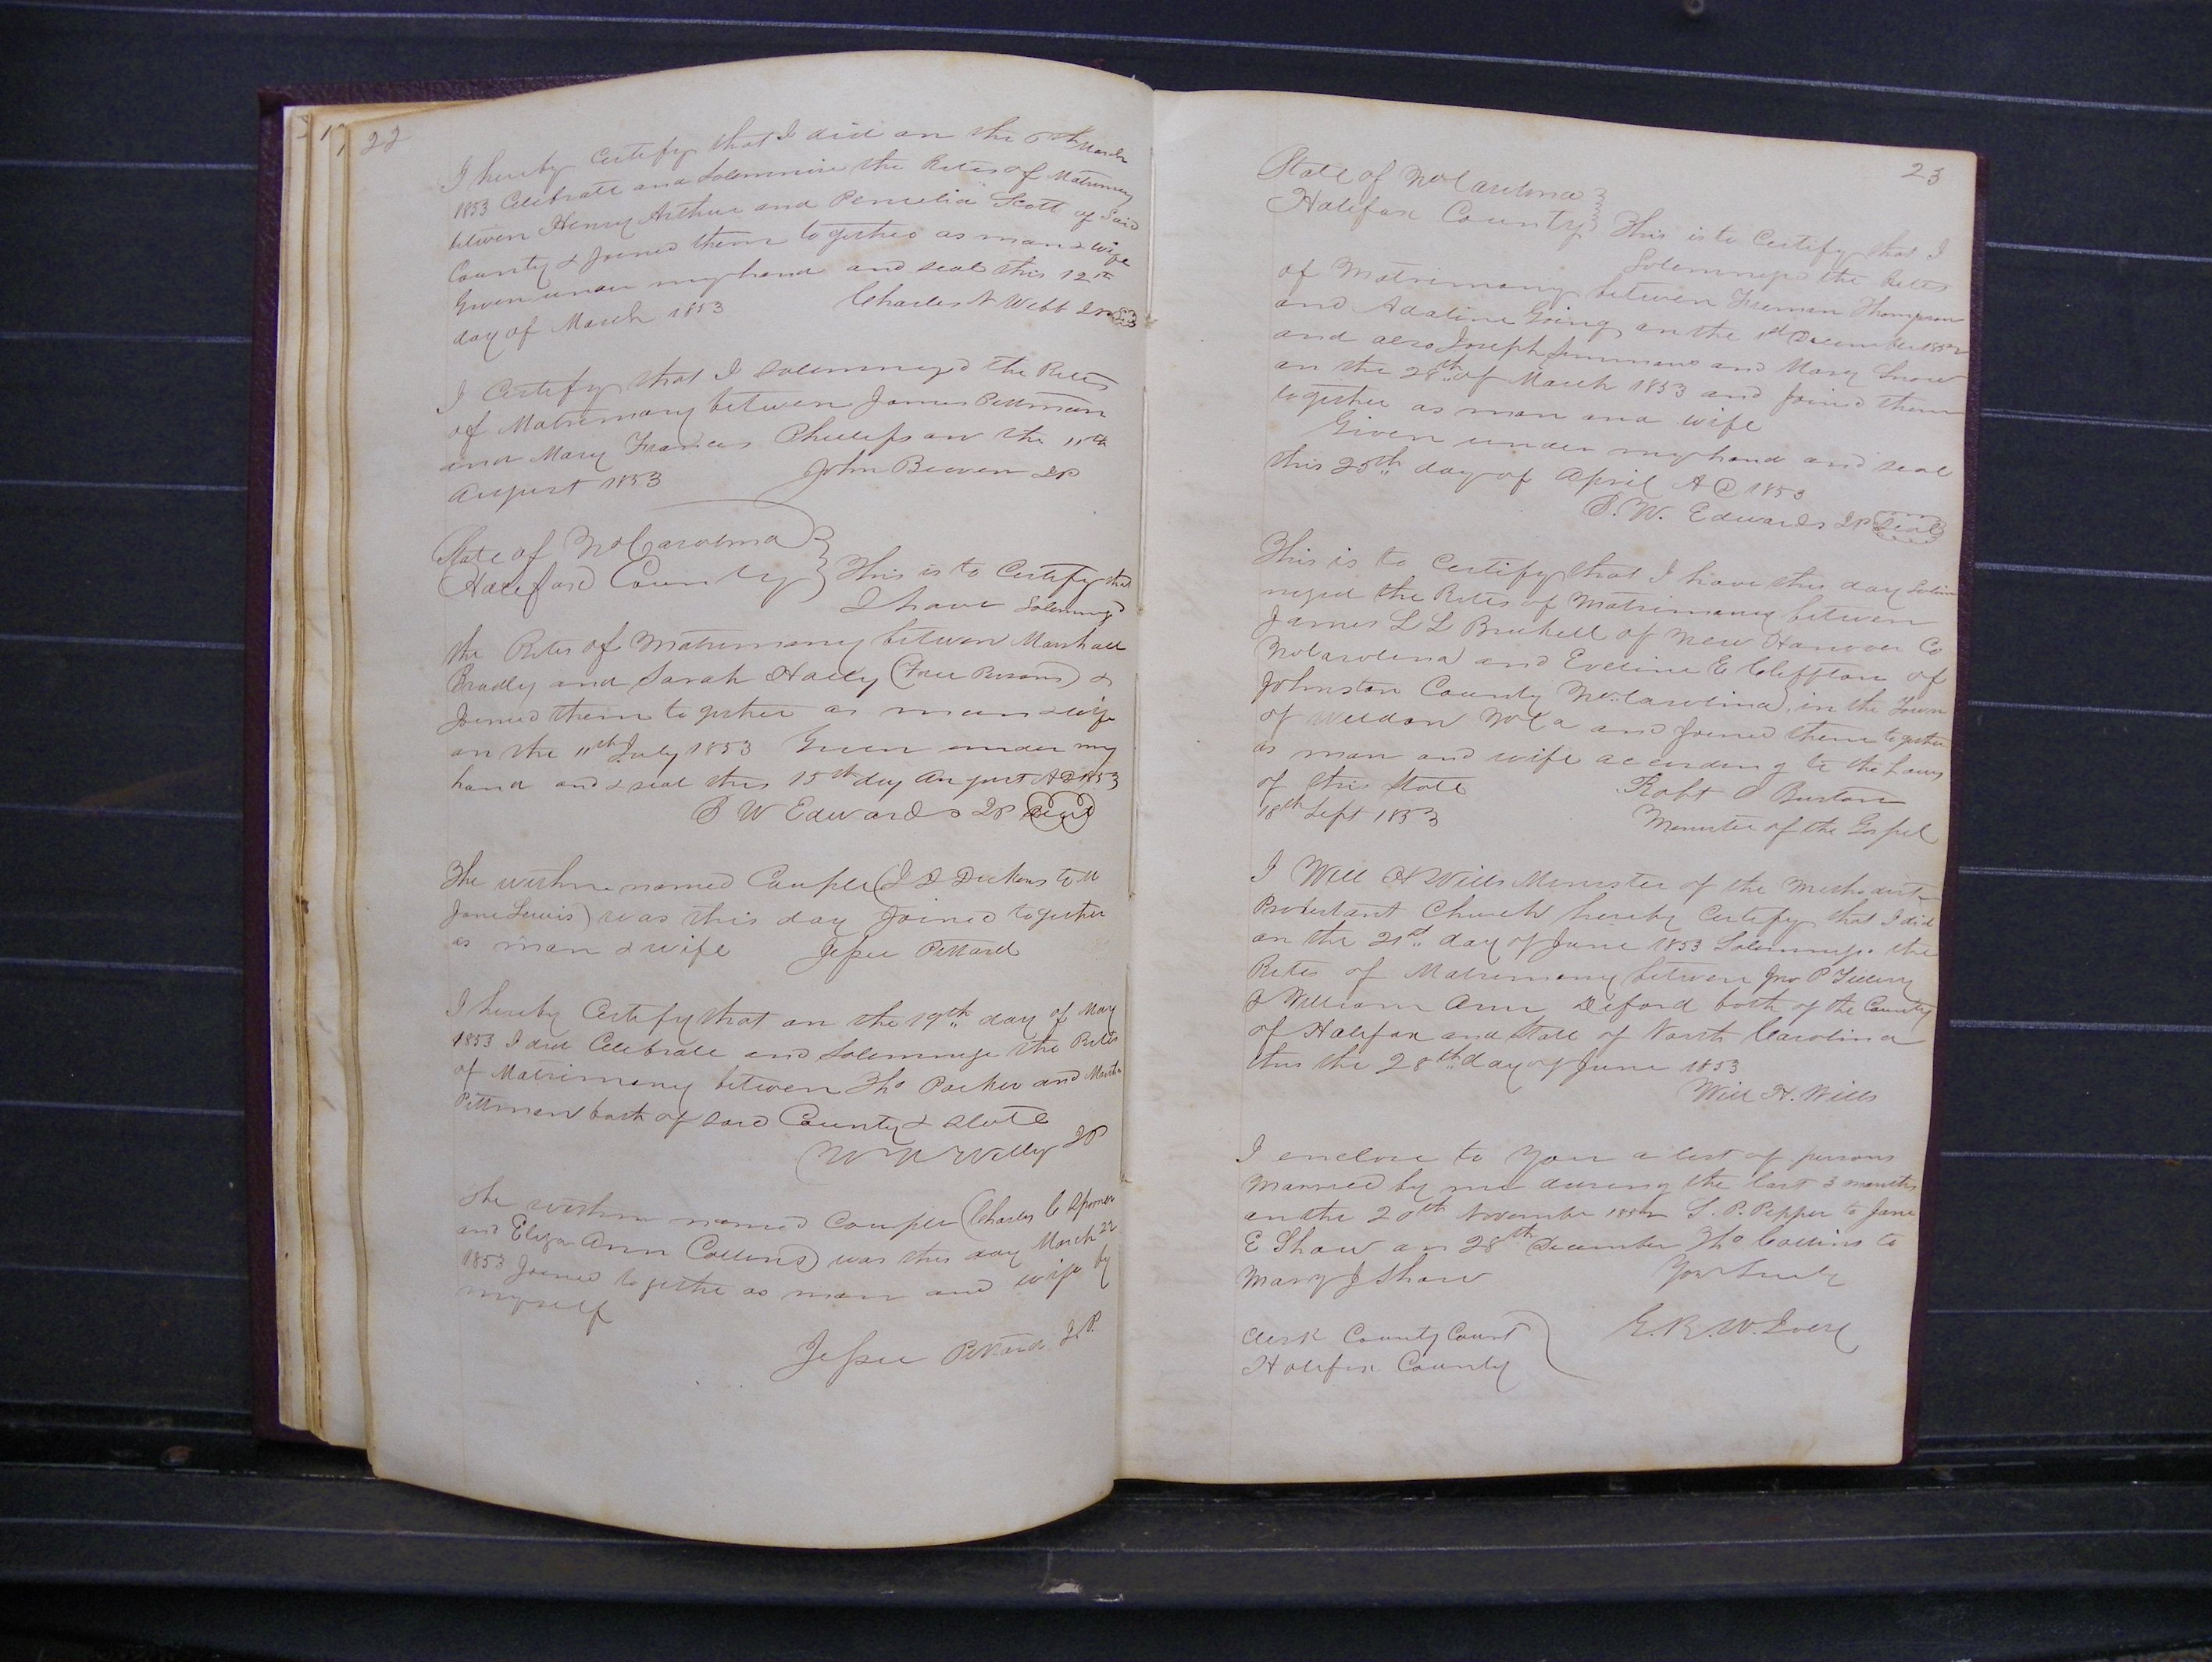 22
I hereby Certify that I did on the 6th March
1853 Celebrate and Solemnise the Rites of Matrimony
between Henry Arthur and Permelia Scott of Said
County & Joined them together as man & wife
Given under my hand and seal this 12th
day of March 1853 Charles N Webb JP
I Certify that I solemnized the Rites
of Matrimony between James Pittman
and Mary Frances Phillips on the 11th
August 1853 John Beaven JP
State of No Carolina
Halifax County This is to Certify that
I have Solemnizd
the Rites of Matrimony between Marshall
Bradly and Sarah Haily (Free Persons) &
Joined them together as man & wife
on the 11th July 1853 Given under my
hand and & seal this 15th day August AD 1853
S W Edwards JP Seal
The within named Couple (J D Dickens to M
Jane Lewis) was this day Joined together
as man & wife Jesse Pittard
I hereby Certify that on the 19th day of May
1853 I did Celebrate and Solemnize the Rites
of Matrimony between Thos Parker and Martha
Pittman both of said County & State
W W Willy JP
The within named Couple (Charles C
and Eliza Ann Collins) was this day March 22
1853 Joined together as man and wife by
myself
Jesse Pittard J.P.
23
State of No Carolina
Halifax County This is to Certify that I
Solemnized the Rites
of Matrimony between Freeman Thompson
and Adaline Going on the 1st December 1852
and also Joseph Simmons and Mary Snow
on the 28th of March 1853 and Joined them
together as man and wife
Given under my hand and seal
this 20th day of April A D 1853
S. W. Edwards JP Seal
This is to Certify that I have this day Solem
nized the Rites of Matrimony between
James L L Brickell of New Hanover Co
No Carolina and Eveline E Cliffton of
Johnston County No. Carolina, in the Town
of Weldon No Ca and Joined them together
as man and wife according to the Laws
of this State Robt O Burton
18th Sept 1853 Minister of the Gospel
I Will H Wills Minister of the Methodist
Protestant Church hereby Certify that I did
on the 21st day of June 1853 Solemnize the
Rites of Matrimony between Jno P Tillery
& William Ann Deford both of the County
of Halifax and State of North Carolina
this the 28th day of June 1853
Will H. Wills
I enclose to You a list of persons
Married by me during the last 3 months
on the 20th November 1852 S. P. Pepper to Jane
E Shaw on 28th December Tho Collins to
Mary J Shaw Yours truly
Clerk County Court E. B. W.
Halifax County